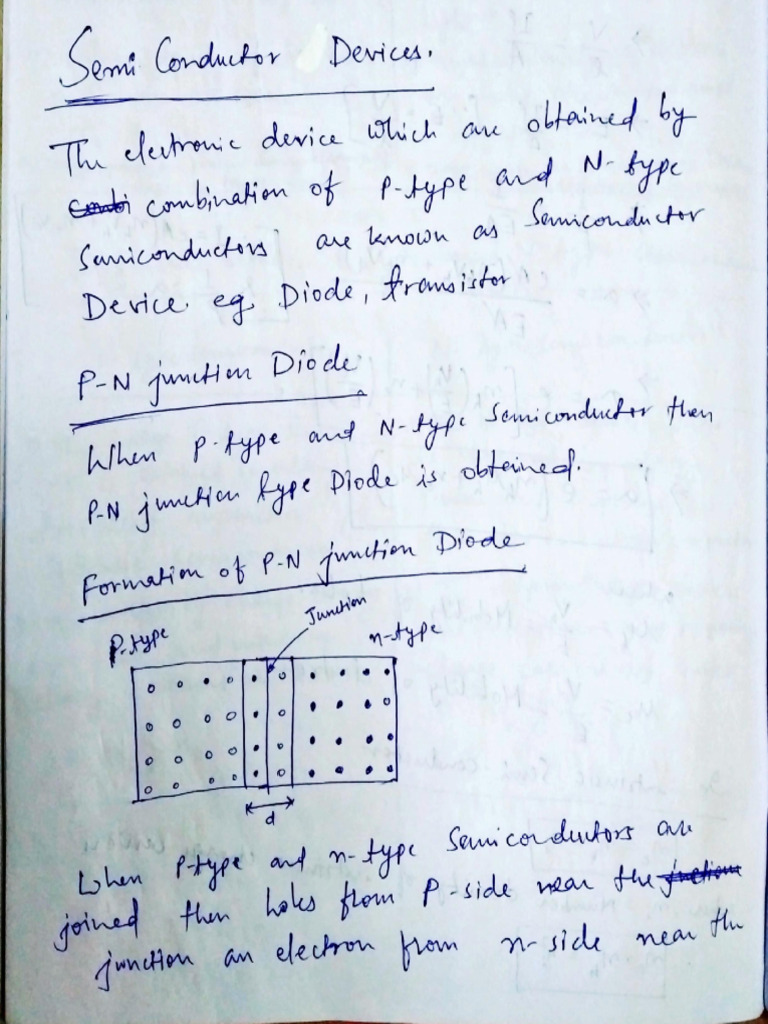 Semi Conductor Devices.
The electronic device which are obtained by
combination of P-type and N-type
Semiconductors are known as Semiconductor
Device eg. Diode, transistor
P-N junction Diode
When P-type and N-type Semiconductor then
P-N junction type Diode is obtained.
Formation of P-N junction Diode
Junction
P-type n-type
d
When P-type and n-type Semiconductors are
joined then holes from P-side near the junction
junction an electron from n-side near the